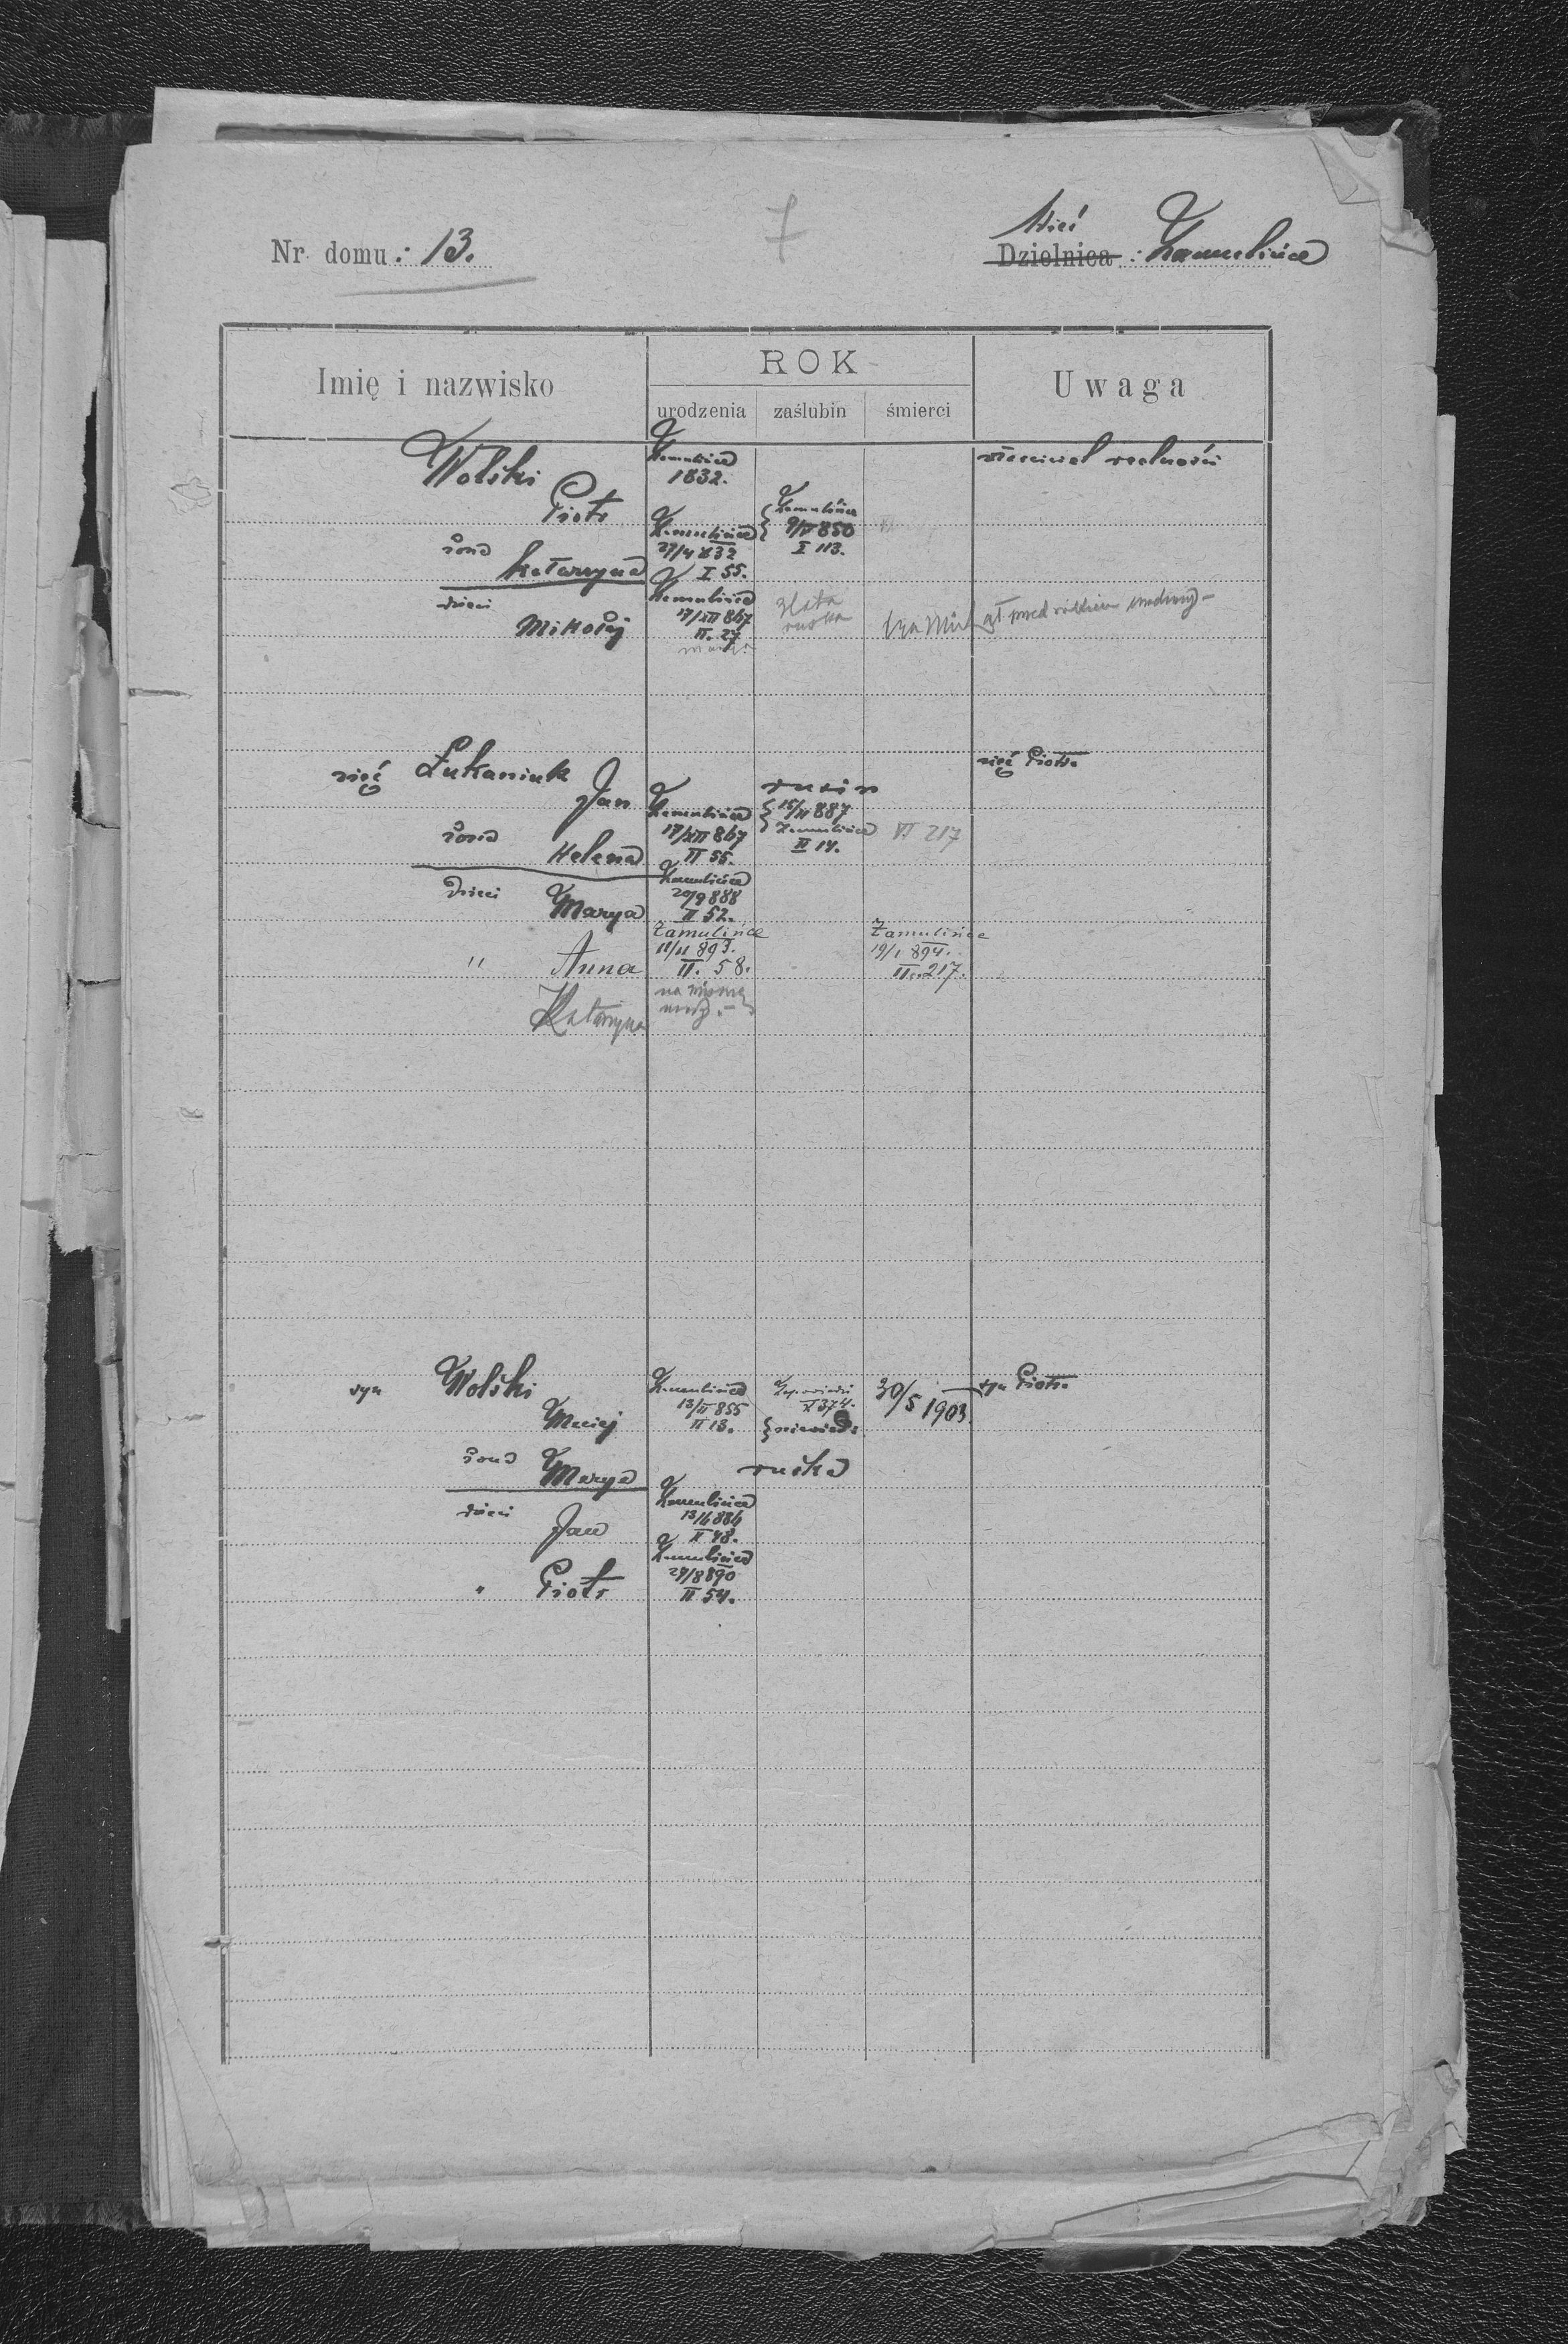 7
Nr domu: 13.
Wieś
Dzielnica: Zamulińce
Imię i nazwisko
ROK
urodzenia zaślubin śmierci
Uwaga
Wolski
Piotr
Zamulińce
1832.
właściciel realności
Zamulińce
850
I 113.
żona Katarzyna
Zamulińce
27/4 832
I 55.
dzieci
Mikołaj
Zamulińce
17/XII 867
II. 27
ruska
zięć Łukaniuk
Jan
rusin
zięć Piotra
15/II 887
Zamulińce
II 14.
żona Helena
Zamulińce
17/XII 867
II 55.
VI 217
dzieci Marya
Zamulińce
20/9 888
II 52.
" Anna
Zamulińce
11/11 893.
II. 58.
Zamulińce
19/1 894.
II. 217.
Katarzyna
syn Wolski
Maciej
Zamulińce
13/II 855
II 13.
Zapowiedzi
30/5 1903.
syn Piotra
żona Marya
ruska
dzieci Jan
Zamulińce
II 48.
" Piotr
Zamulińce
27/8 890
II 54.